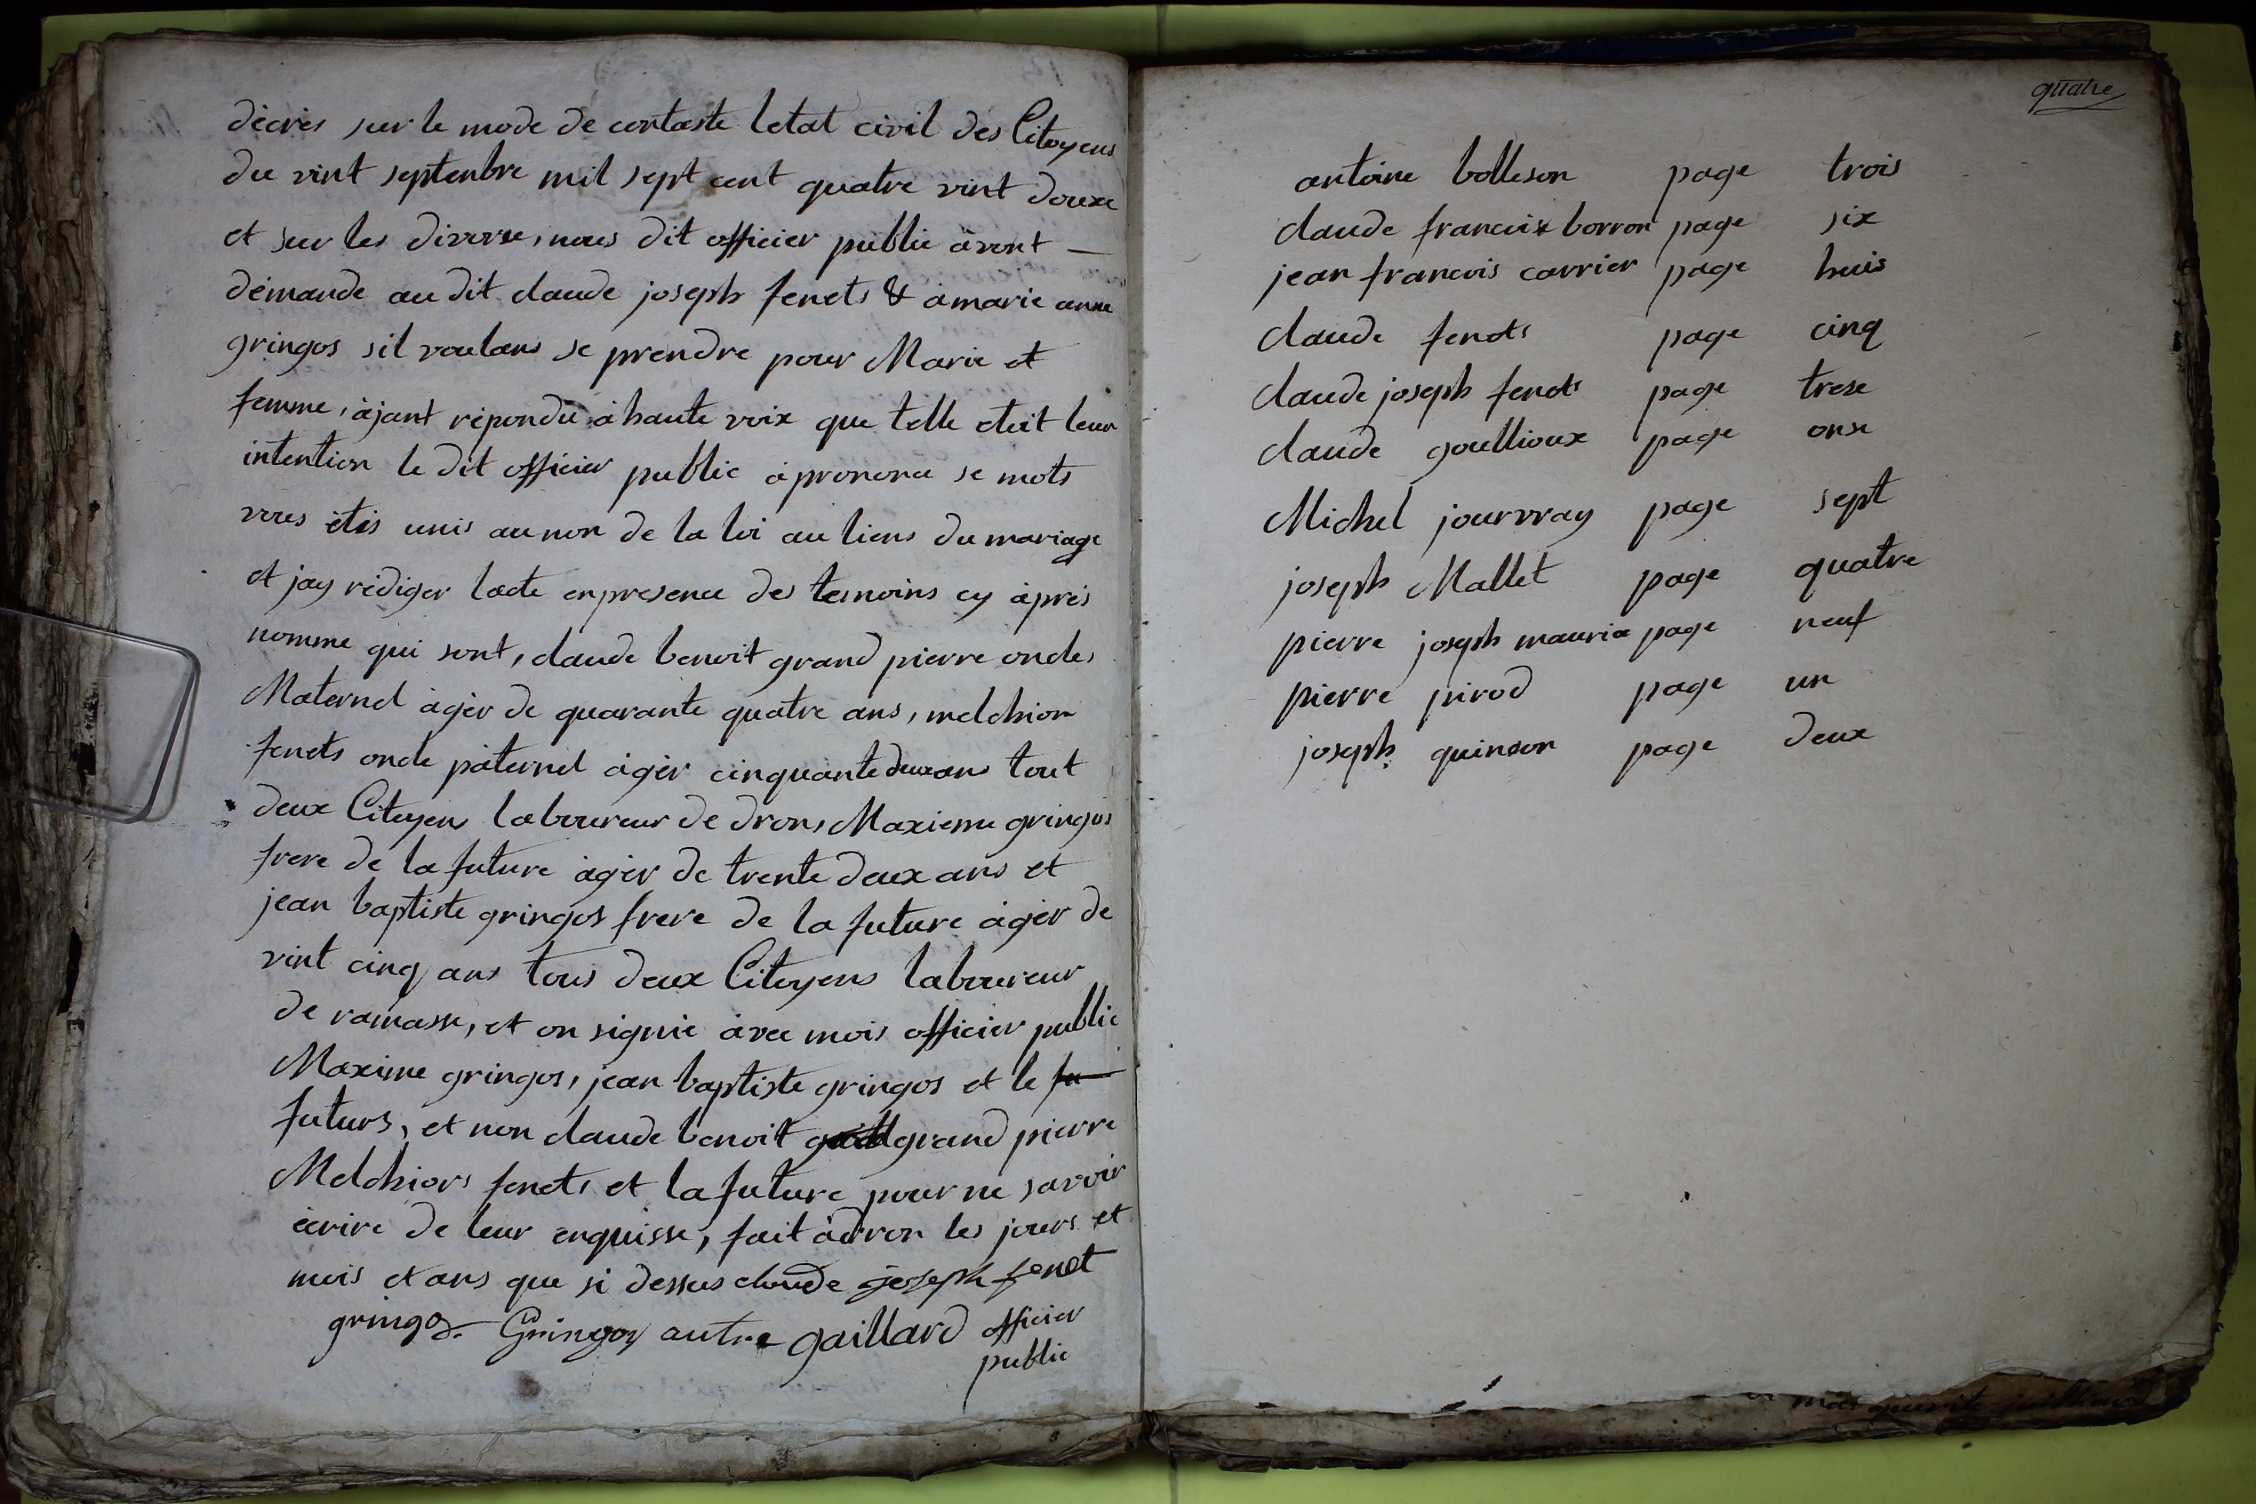 décrès sur le mode de contaste letat civil des Citoyens
du vint septenbre mil sept cent quatre vint douxe
et sur les divorse, nous dit officier public àvont —
démande au dit claude joseph fenets & à marie anne
gringos sil voulans se prendre pour Marie et
femme, àjant répondu à haute voix que telle etoit leur
intention le dit officier public à prononce se mots
vous étés unis au non de la loi au liens du mariage
et jay rédiger lacte en presence des temoins cy àprés
nomme qui sont, claude benoit grand pierre oncles
Maternel àgér de quarante quatre ans, melchior
fenets oncle pàternel àgér cinquante deux ans tout
deux Citoyens laboureur de drons Maxieme gringos
frere de la future àgér de trente deux ans et
jean baptiste gringos frere de la future àgér de
vint cinq ans tous deux Citoyens laboureur
de ramasse, et on signié àvec mois officier public
Maxime gringos, jean baptiste gringos et le fu
futurs, et non claude benoit grand pierre
Melchiors fenets et la future pour ne savoir
écrire de leur enquisse, fait à dron les jours et
mois et ans que si dessus claude joseph fenet
gringos. Gringos autre gaillard officier
public
quatre
antoine bolleson page trois
claude francoix borron page six
jean francois carrier page huis
claude fenets page cinq
claude joseph fenets page trese
claude goullioux page onse
Michel jourvray page sept
joseph Mallet page quatre
pierre joseph mauria page neuf
pierre pirod page un
joseph quinson page deux